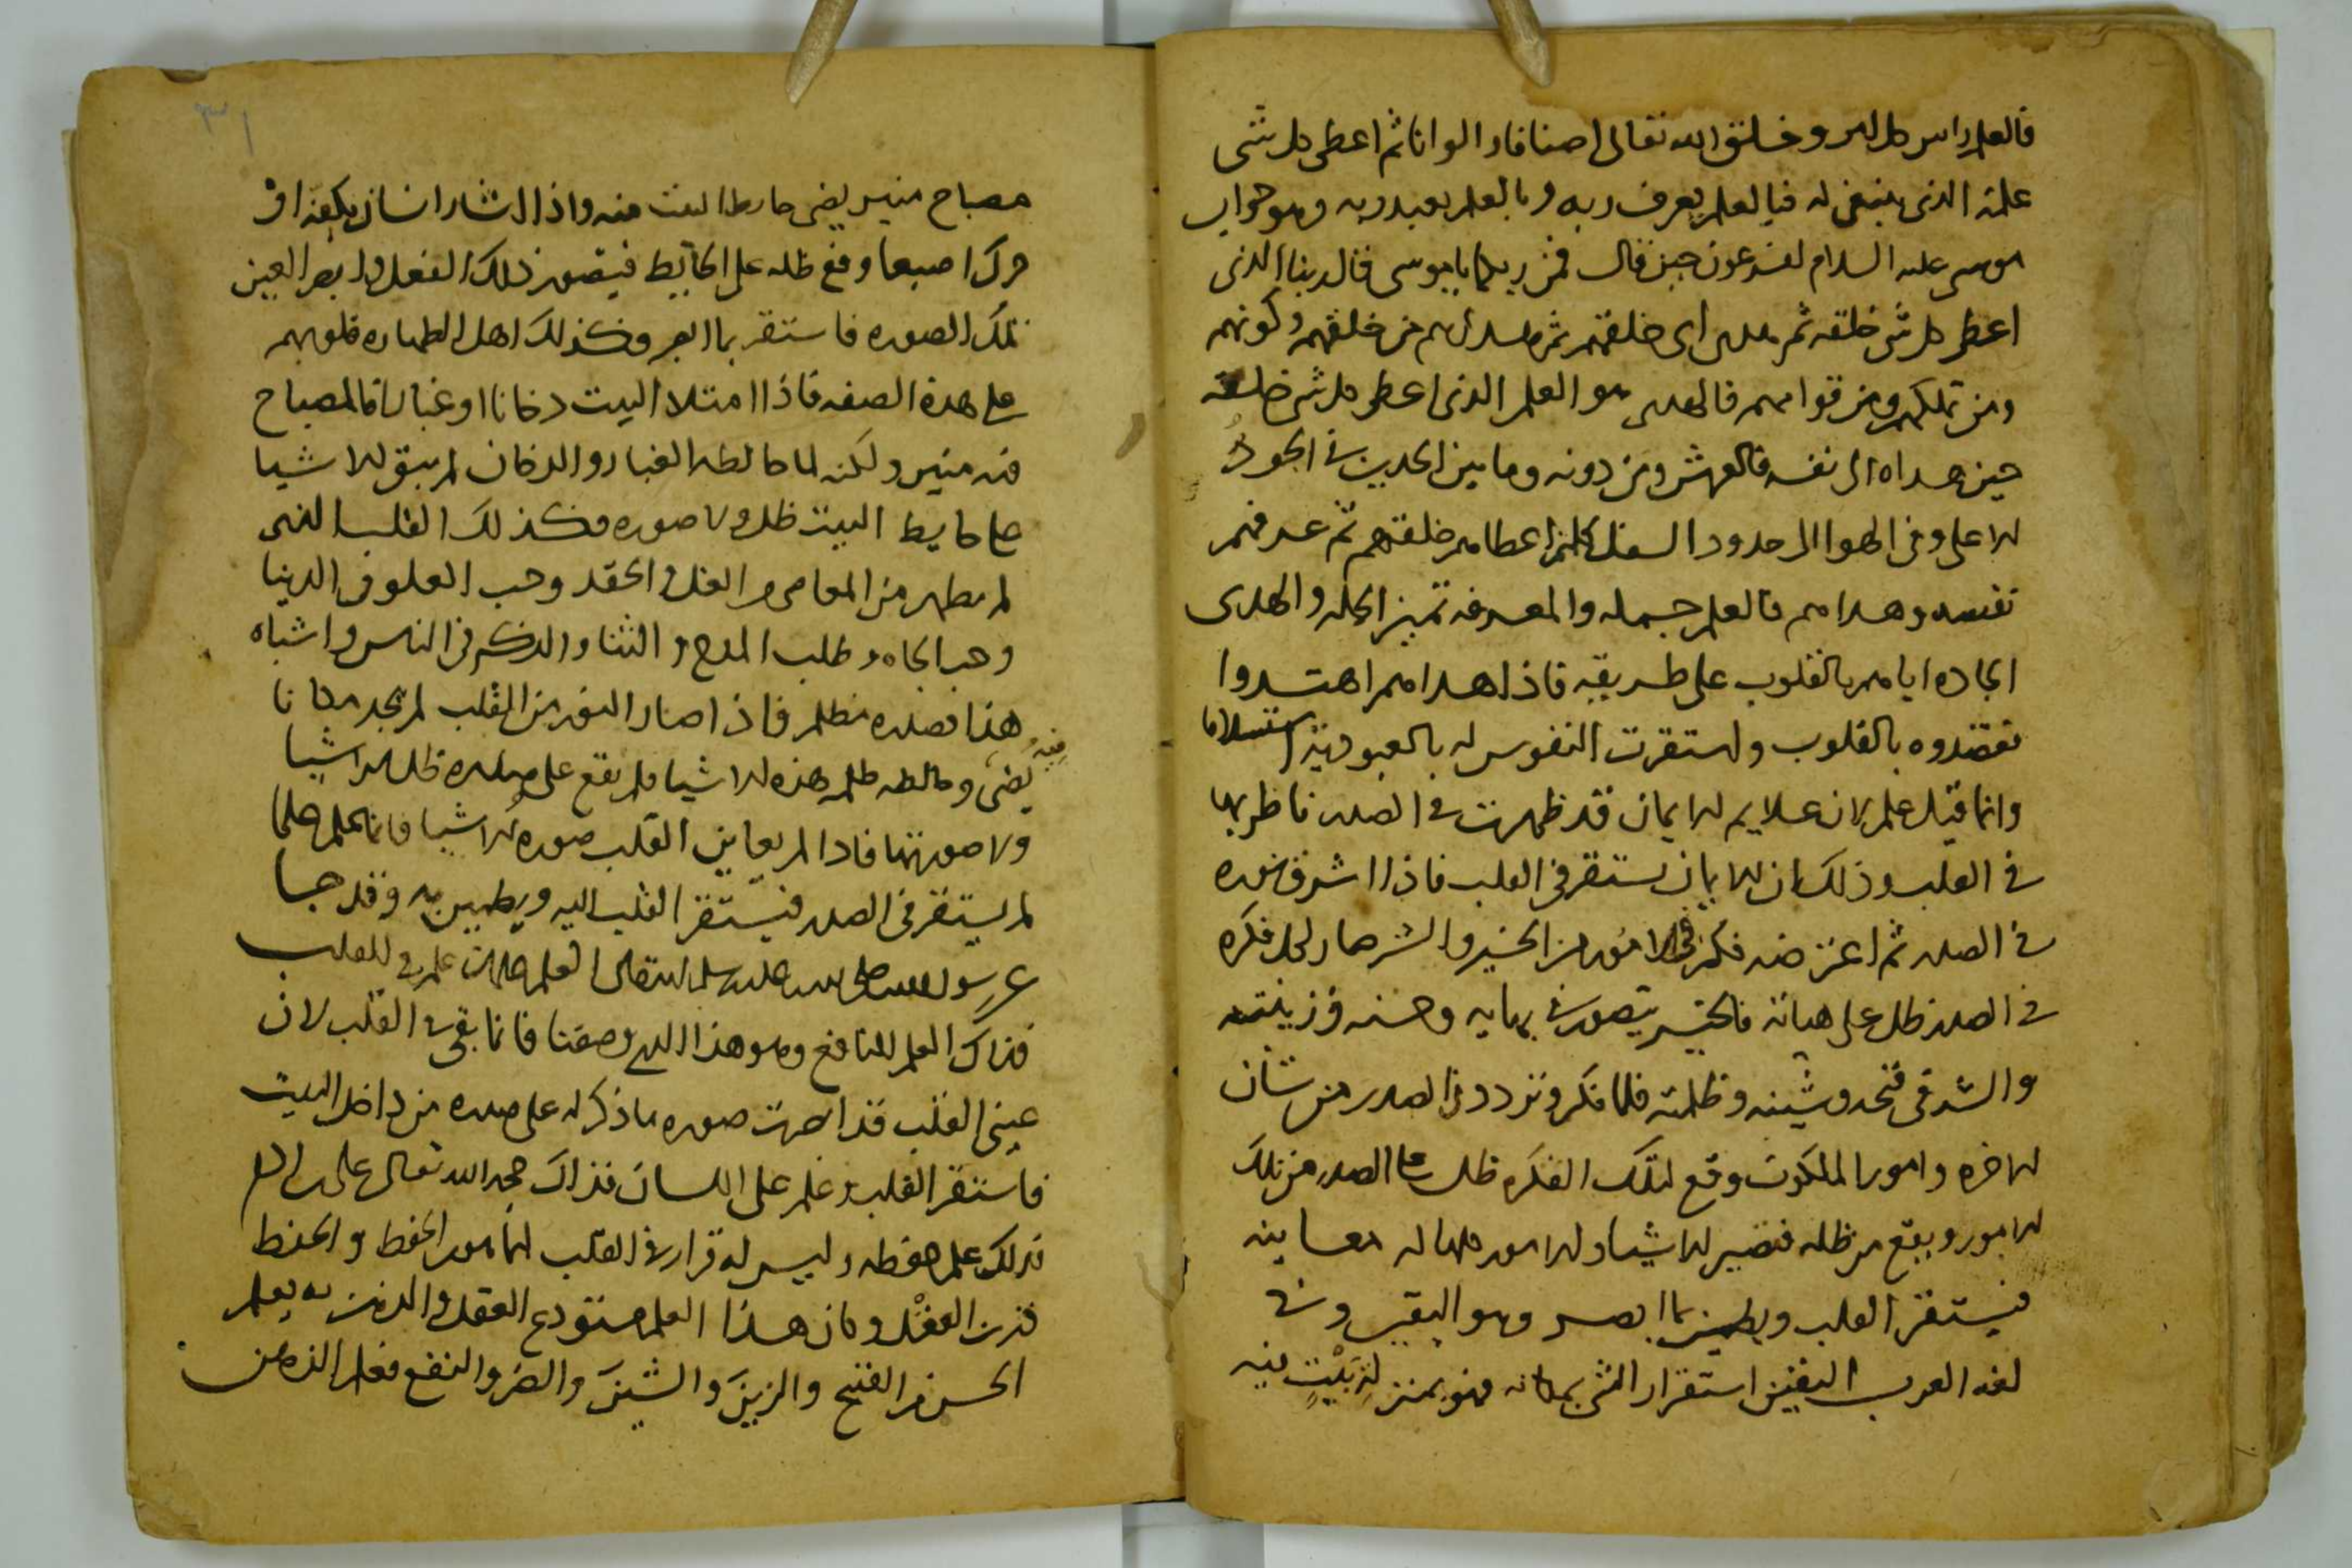 فالعلم راس كل امر وخلق الله تعالى اصنافا والوانا ثم اعطى كل شى
علمه الذى ينبغى له فبالعلم يعرف ربه وبالعلم يعبد ربه وهو جواب
موسى عليه السلام لفرعون حين قال فمن ربكما ياموسى قال ربنا الذى
اعطى كل شى خلقه ثم هدى اى خلقهم ثم هداهم من خلقهم وكونهم
ومن تملكهم ومن قوامهم فالهدى هو العلم الذى اعطى كل شى خلقه
حين هداه الى نفسه فالعرش ومن دونه وما بين الحدين فى الجو
الاعلى وفى الهوا الى حدود السفل كلهم اعطاهم خلقهم ثم عرفهم
نفسه وهداهم فالعلم جمله والمعرفه تميز الجمله والهدى
ايامهم بالقلوب على طريقه فاذا هداهم اهتدوا
بالقلوب واستقرت النفوس له بالعبوديه استسلاما
وانما قيل علم لان علايم الايمان قد ظهرت فى الصدر ناظر بها
فى القلب وذلك ان الايمان يستقر فى القلب فاذا اشرق نوره
فى الصدر ثم فكر فى الامور من الخير والشر صار لكل فكره
فى الصدر ظل على هياته فالخير يتصور فى بهايه وحسنه وزينته
والشر فى قبحه وشينه وظلمته فلما فكر وتردد فى الصدر من شان
الاخره وامور الملكوت وقع لتلك الفكره ظل على الصدر من تلك
الامور ويقع من ظله فتصير الاشيا والامور كلها له معاينه
فيستقر القلب ويطمين بما ابصر وهو اليقين وفى
لغه العرب اليقين استقرار الشى بمكانه فهو بمنزله بيت فيه
مصباح منير يضى حايط البيت منه واذا اشار انسان بكفه او
حرك اصبعا وقع ظله على الحايط فيتصور ذلك الفعل وابصر العين
تلك الصوره فاستقر بما ابصر وكذلك اهل الطهاره قلوبهم
على هذه الصفه فاذا امتلا البيت دخانا او غبارا فالمصباح
فيه منير ولكنه لما خالطه الغبار والدخان لم يبق للاشيا
على حايط البيت ظل ولا صوره فكذلك القلب الذى
لم يطهر من المعاصى والغل والحقد وحب العلو فى الدنيا
وحب الجاه وطلب المدح والثنا والذكر فى الناس واشباه
هذا فصدره مظلم فاذا صار النور من القلب لم يجد مكانا
فيه
يضى وخالطه ظلمه هذه الاشيا فلم يقع على صدره ظل الاشيا
ولا صورتها فاذا لم يعاين القلب صوره الاشيا فانما علم علما
لم يستقر فى الصدر فيستقر القلب اليه ويطمين به وقد جا
عن رسول الله صلى الله عليه وسلم انه قال العلم علمان علم فى القلب
فذاك العلم النافع وهو هذا الذى وصفنا فانما بقى فى القلب لان
عينى القلب قد ابصرت صوره ما ذكر له على صدره من داخل البيت
فاستقر القلب وعلم على اللسان فذاك حجه الله تعالى على ابن ادم
فذلك علم حفظه وليس له قرار فى القلب انما هو الحفظ والحفظ
قرين العقل وكان هذا العلم مستودع العقل والذهن به يعلم
الحسن من القبح والزين والشين والضر والنفع فعلم الذهن